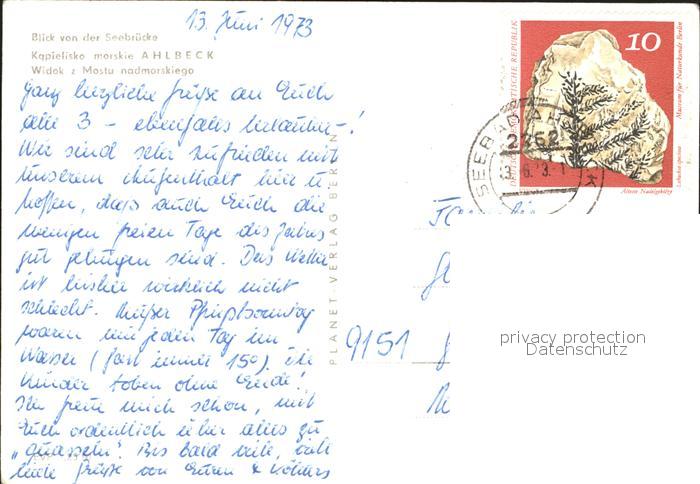 13. Juni 1973
Blick von der Seebrücke
Kąpielisko morskie AHLBECK
Widok z Mostu nadmorskiego
Ganz herzliche Grüße an Euch
alle 3 - ebenfalls Urlauber!
Wir sind sehr zufrieden mit
unserem Aufenthalt hier u.
hoffen, dass auch Euch die
wenigen freien Tage des Jahres
gut gelungen sind. Das Wetter
ist bisher wirklich nicht
schlecht. Außer Pfingstsonntag
waren wir jeden Tag im
Wasser (fast immer 15°). Die
Kinder toben ohne Ende!
Ich freue mich schon, mit
Euch ordentlich über alles zu
"quasseln". Bis bald viele, viele
liebe Grüße von Euren 4 Köhlers
PLANET VERLAG BERLIN
10
DEUTSCHE DEMOKRATISCHE REPUBLIK
Museum für Naturkunde Berlin
Lebachia speciosa
Älteste Nadelgehölze
SEEBAD AH K
2252
13.6.73
9151
privacy protection
Datenschutz